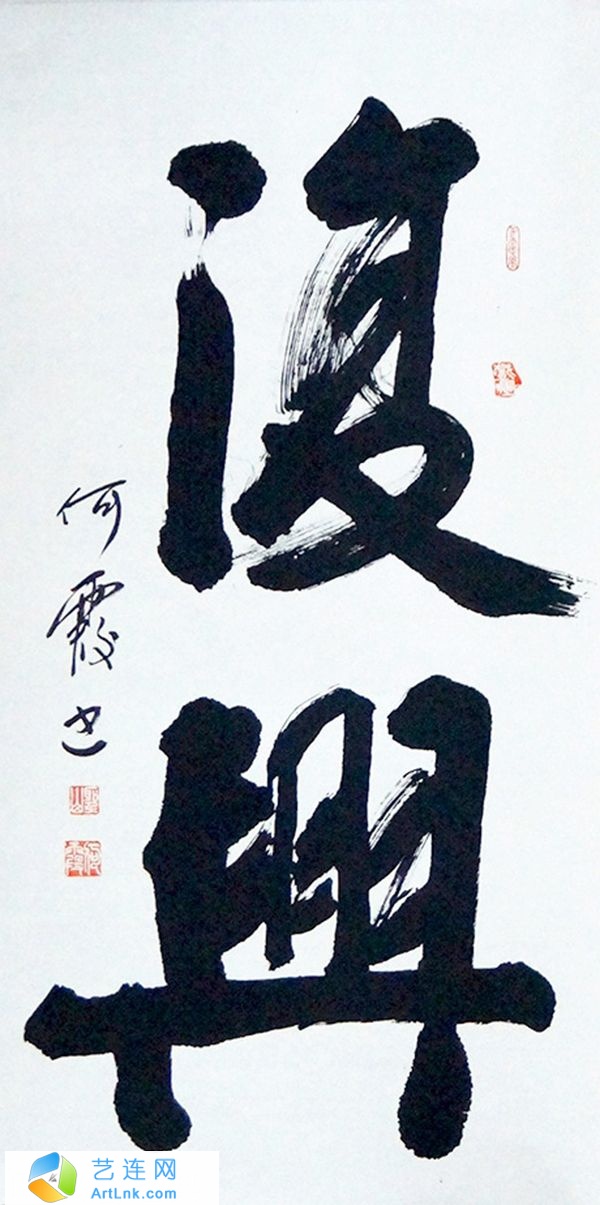 復興
何霞书
艺连网
ArtLnk.com